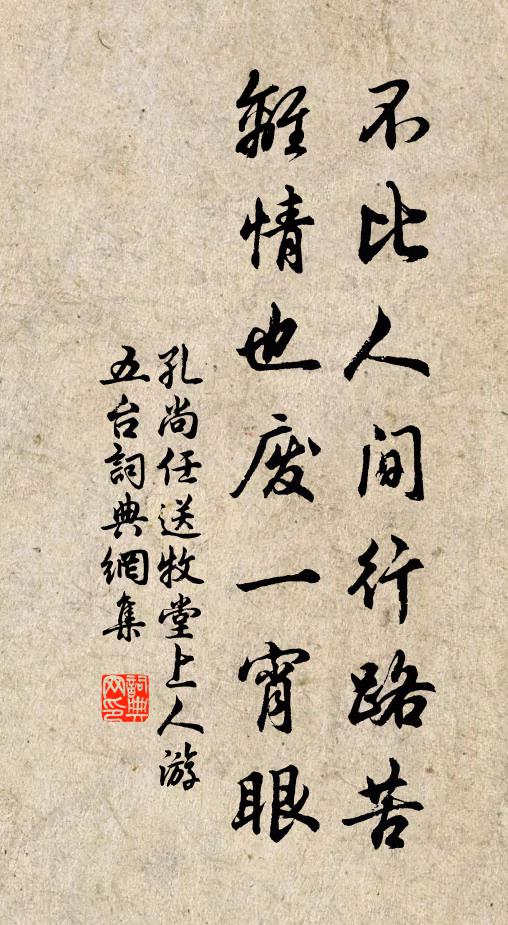 不比人間行路苦
離情也废一宵眠
孔尚任送牧堂上人游
五台詞典網集
詞典網印